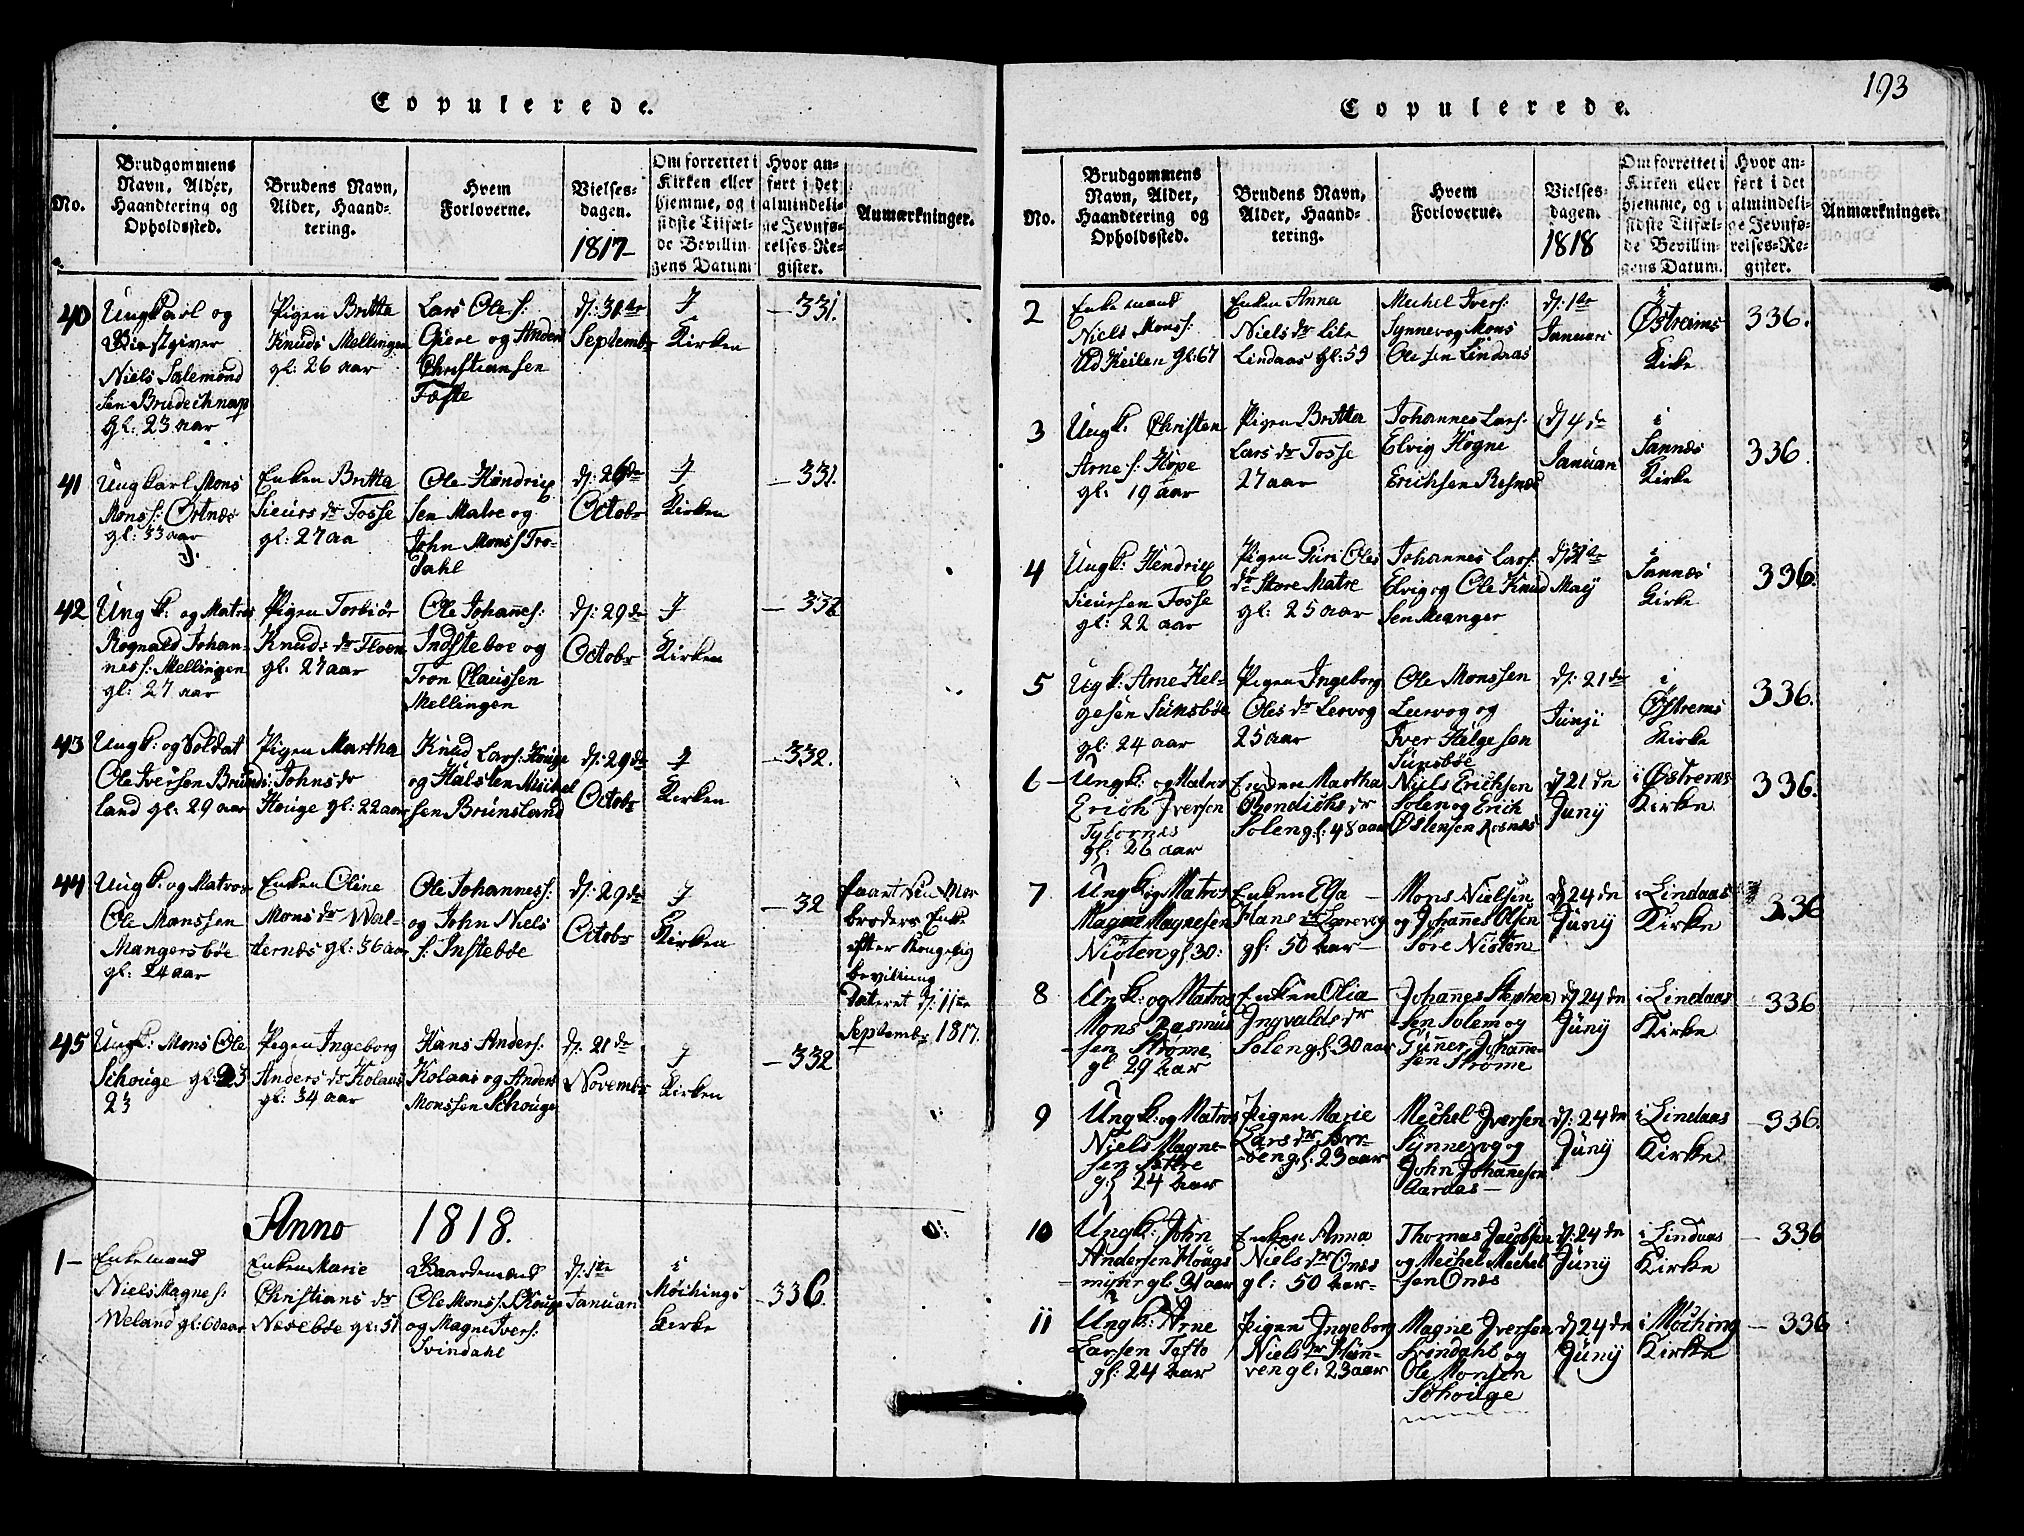 193
Copulerede.
No.
Brudgommens
Navn, Alder,
Haandtering og
Opholdssted.
Brudens Navn,
Alder, Haand-
tering.
Hvem
Forloverne.
Vielses-
dagen.
1817-
Om forrettet i
Kirken eller
hjemme, og i
sidste Tilfæl-
de Bevillin-
gens Datum
Hvor an-
ført i det
almindeli-
ge Jevnfø-
relses-Re-
gister.
Anmærkninger.
40
Ungkarl og
Niels Salemond
sen
gl: 23 aar
Pigen Britta
Knuds Mellingen
gl: 26 aar
Lars Ole s:
Giere og Anders
Christiansen
Fæste
d: 31te
Septembr
J
Kirken
-331.
41
Ungkarl Mons
Mons s: Østnæs
gl: 33 aar
Enken Britta
Sieurs dr Fosse
gl: 27 aa
Ole Hendrich
sen Matre og
John Mons s
dahl
d: 26de
Octobr
J
Kirken
-331.
42
Ung k: og Matros
Rognald Johan-
nes s: Mellingen
gl: 27 aar
Pigen Torbiør
Knuds dr Floen
gl: 27 aar
Ole Johanes:
Indsteboe og
Tron Claussen
Mellingen
d: 29de
Octobr
J
Kirken
-332
43
Ungk: og Soldat
Ole Iversen Brunds
land gl: 29 aar
Pigen Martha
Johns dr
Houge gl: 22 aar
Knud Lars: Houge
og Halsten Michel
sen Brunsland
d: 29de
Octobr
J
Kirken
-332.
44
Ungk: og Matros
Ole Monssen
Mangersbøe
gl: 24 aar
Enken Oline
Mons dr Wal-
dernæs gl: 36 aar
Ole Johannes s:
og John Niels
s: Instebøe
d: 29de
Octobr
J
Kirken
-32
sin Mor
broders Enke
efter Kongelig
bevilling
Dateret d: 11te
Septembr 1817.
45
Ungk: Mons Ole
Schouge gl: 23
23
Pigen Ingeborg
Anders dr Kolaas
gl: 34 aar
Hans Anders:
Kolaas og Anders
Monssen Schouge
d: 21de
Novembr
J
Kirken
-332
Anno 1818.
1-
Enkemand
Niels Magne s:
Weland gl: 60 aar
Enken Marie
Christians dr
Nesebøe gl: 51
Ole Mons s: Schouge
og Magne Ivers:
Svindahl
d: 1te
Januari
i
Møchings
Kirke
-336.
Copulerede.
No.
Brudgommens
Navn, Alder,
Haandtering og
Opholdssted.
Brudens Navn,
Alder, Haand-
tering.
Hvem
Forloverne.
Vielses-
dagen.
1818
Om forrettet i
Kirken eller
hjemme, og i
sidste Tilfæl-
de Bevillin-
gens Datum.
Hvor an-
ført i det
almindeli-
ge Jevnfø-
relses-Re-
gister.
Anmærkninger.
2
Enkemand
Niels Mons s:
Ud Keilen gl: 67
Enken Anna
Niels dr Lile
Lindaas gl: 53
Mechel Ivers:
Synnevog Mons
Olesen Lindaas
d: 1te
Januari
i
Østreims
Kirke
336.
3
Ungk: Christen
Arne s: Hope
gl: 19 aar
Pigen Britta
Lars dr Fosse
27 aar
Johannes Lars:
Elvig Hogne
Erichsen Risnes
d 4de
Januari
i
Sannæs
Kirke
336.
4
Ungk: Hendrich
Sieursen Fosse
gl: 22 aar
Pigen Guri Oles
dr Store Matre
gl: 25 aar
Johannes Lars:
Elvig og Ole Knud
sen Meanger
d 31te
Maij
i
Sannæs
Kirke
336.
5
Ugk: Arne Hel-
gesen Sunsbøe
gl: 24 aar
Pigen Ingeborg
Oles dr Lervog
25 aar
Ole Monssen
Leervog og
Iver Helgesen
Sunsbøe
d: 21de
Junji
i
Østrems
Kirke
336.
6-
Ungk: og Matros
Erich Iversen
gl: 26 aar
Enken Martha
Bendichs dr
Solen gl: 48 aar
Niels Erichsen
Solen og Erich
Østensen Rosnæs
d 21 dn
Junij
i Østrems
Kirke
336.
7
Ungk: og Matros
Magne Magnesen
Nioten gl 30:
Enken Elsa
Hans dr
gl: 50 aar-
Mons Nielsen
og Johannes Olsen
Nioten
d 24 dn
Junij
i Lindaas
Kirke
336
8
Unk: og Matros
Mons Rasmus
sen Strøme
gl 29 aar
Enken Olia
Ingvalds dr
Solen gl: 30 aar
Johanes Stephen
sen Solem og
Gunner Johanne-
sen Strøme
d 24 dn
Junij
i Lindaas
Kirke
336
9
Ungk: og Matros
Niels Magne-
sen
gl 24 aar
Pigen Marie
Lars dr
gl: 23 aar
Mechel Iversen
Synnevog og
John Johanesen
Aardas-
d: 24 dn
Junij
i Lindaas
Kirke
-336.
10
Ungk: John
Andersen Hougs
myhr gl: 31 aar
Enken Anna
Niels dr Onæs
gl: 50 aar-
Thomas Jacobsen
og Mechel Mechel
sen Onæs
d: 24 dn
Junij
i Lindaas
Kirke
-336
11
Ungk: Arne
Larsen Tofto
gl: 24 aar
Pigen Ingeborg
Niels dr Hun-
ven gl: 23 aar
Magne Iversen
Svindahl og
Ole Monsen
Schouge
d 24 dn
Junij
i Møching
Kirke
-336